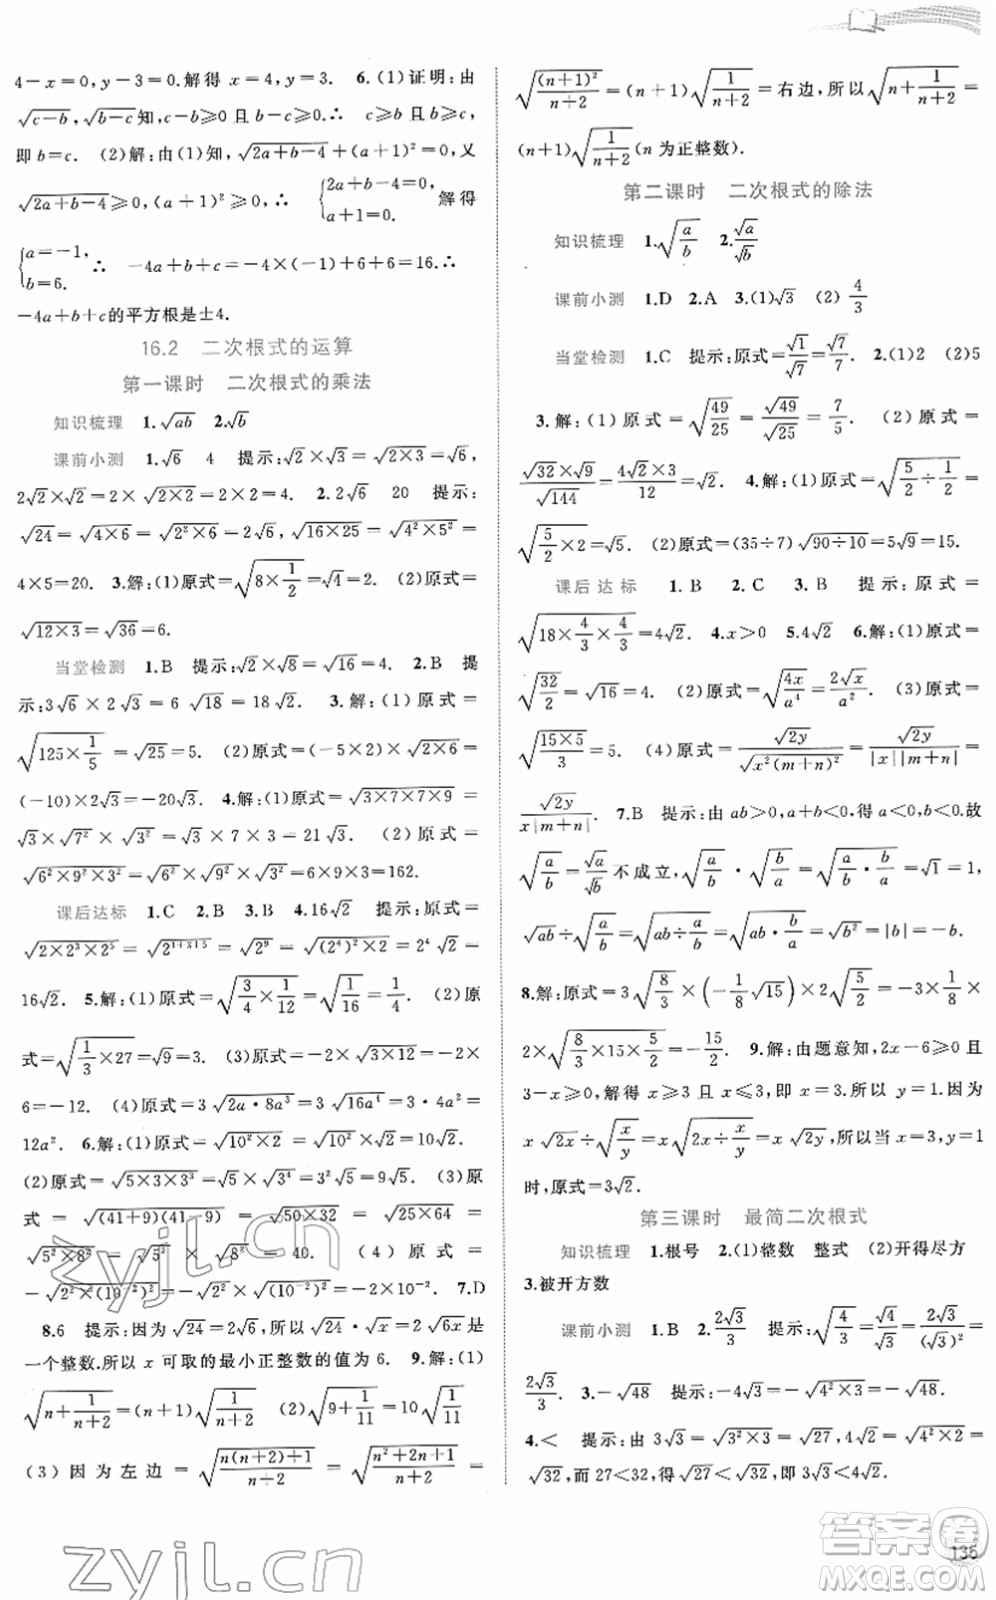 4－x＝0,y－3＝0.解得 x＝4,y＝3.　6.(1)证明:由
√(c－b),√(b－c)知,c－b≥0且b－c≥0.∴　c≥b且b≥c,
即 b＝c.　(2)解:由(1)知,√(2a＋b－4)＋(a＋1)²＝0,又
√(2a＋b－4)≥0,(a＋1)²≥0,∴　{2a＋b－4＝0, a＋1＝0. 解得
{a＝－1, b＝6. ∴　－4a＋b＋c＝－4×(－1)＋6＋6＝16.∴
－4a＋b＋c的平方根是±4.
16.2　二次根式的运算
第一课时　二次根式的乘法
知识梳理　1.√ab　2.√b
课前小测　1.√6　4　提示:√2×√3＝√(2×3)＝√6,
2√2×√2＝2×√(2×2)＝4.　2.2√6　20　提示:
√24＝√(4×6)＝√(2²×6)＝2√6,√(16×25)＝√(4²×5²)＝
4×5＝20.　3.解:(1)原式＝√(8×1/2)＝√4＝2.　(2)原式＝
√(12×3)＝√36＝6.
当堂检测　1.B　提示:√2×√8＝√16＝4.　2.B　提
示:3√6×2√3＝6√18＝18√2.　3.解:(1)原式＝
√(125×1/5)＝√25＝5.　(2)原式＝(－5×2)×√(2×6)＝
(－10)×2√3＝－20√3.　4.解:(1)原式＝√(3×7×7×9)＝
√3×√7²×√3²＝√3×7×3＝21√3.　(2)原式＝
√(6²×9²×3²)＝√6²×√9²×√3²＝6×9×3＝162.
课后达标　1.C　2.B　3.B　4.16√2　提示:原式＝
√(2×2³×2⁵)＝√2¹⁺³⁺⁵＝√2⁹＝√((2⁴)²×2)＝2⁴√2＝
16√2.　5.解:(1)原式＝√(3/4×1/12)＝√(1/16)＝1/4.　(2)原
式＝√(1/3×27)＝√9＝3.　(3)原式＝－2×√(3×12)＝－2×
6＝－12.　(4)原式＝3√(2a·8a³)＝3√16a⁴＝3·4a²＝
12a².　6.解:(1)原式＝√(10²×2)＝√10²×√2＝10√2.
(2)原式＝√(5×3×3³)＝√5×√3⁴＝3²√5＝9√5.　(3)原
式＝√((41＋9)(41－9))＝√(50×32)＝√(5²×8²)＝
√5²×√8²＝40.　(4)原式＝
－√(2²×(10⁻²)²)＝－√2²×√(10⁻²)²＝－2×10⁻².　7.D
8.6　提示:因为√24＝2√6,所以√24·√x＝2√6x是
一个整数.所以 x 可取的最小正整数的值为 6.　9.解:(1)
√(n＋1/(n＋2))＝(n＋1)√(1/(n＋2))　(2)√(9＋1/11)＝10√(1/11)
(3)因为左边＝√((n(n＋2)＋1)/(n＋2))＝√((n²＋2n＋1)/(n＋2))＝
√((n＋1)²/(n＋2))＝(n＋1)√(1/(n＋2))＝右边,所以√(n＋1/(n＋2))＝
(n＋1)√(1/(n＋2))(n 为正整数).
第二课时　二次根式的除法
知识梳理　1.√(a/b)　2.√a/√b
课前小测　1.D　2.A　3.(1)√3　(2)4/3
当堂检测　1.C　提示:原式＝√1/√7＝√7/7.　2.(1)2　(2)5
3.解:(1)原式＝√(49/25)＝√49/√25＝7/5.　(2)原式＝
√32×√9/√144＝4√2×3/12＝√2.　4.解:(1)原式＝√(5/2÷1/2)＝
√(5/2×2)＝√5.　(2)原式＝(35÷7)√(90÷10)＝5√9＝15.
课后达标　1.B　2.C　3.B　提示:原式＝
√(18×4/3×4/3)＝4√2.　4.x＞0　5.4√2　6.解:(1)原式＝
√(32/2)＝√16＝4.　(2)原式＝√(4x/a⁴)＝2√x/a².　(3)原式＝
√(15×5/3)＝5.　(4)原式＝√2y/√(x²(m＋n)²)＝√2y/(|x||m＋n|)＝
√2y/(x|m＋n|).　7.B　提示:由 ab＞0,a＋b＜0,得 a＜0,b＜0.故
√(a/b)＝√a/√b 不成立,√(a/b)·√(b/a)＝√(a/b·b/a)＝√1＝1,
√ab÷√(a/b)＝√(ab÷a/b)＝√(ab·b/a)＝√b²＝|b|＝－b.
8.解:原式＝3√(8/3)×(－1/8√15)×2√(5/2)＝－3×1/8×
2×√(8/3×15×5/2)＝－15/2.　9.解:由题意知,2x－6≥0且
3－x≥0,解得 x≥3且x≤3,即 x＝3.所以 y＝1.因为
x√2x÷√(x/y)＝x√(2x÷x/y)＝x√2y,所以当 x＝3,y＝1
时,原式＝3√2.
第三课时　最简二次根式
知识梳理　1.根号　2.(1)整数　整式　(2)开得尽方
3.被开方数
课前小测　1.B　2.2√3/3　提示:√(4/3)＝√4/√3＝2√3/(√3)²＝
2√3/3.　3.－√48　提示:－4√3＝－√(4²×3)＝－√48.
4.＜　提示:由 3√3＝√(3²×3)＝√27,4√2＝√(4²×2)＝
√32,而 27＜32,得√27＜√32,即 3√3＜4√2.
135
zyjl.cn
zyjl.cn
答案圈
MXQE.COM